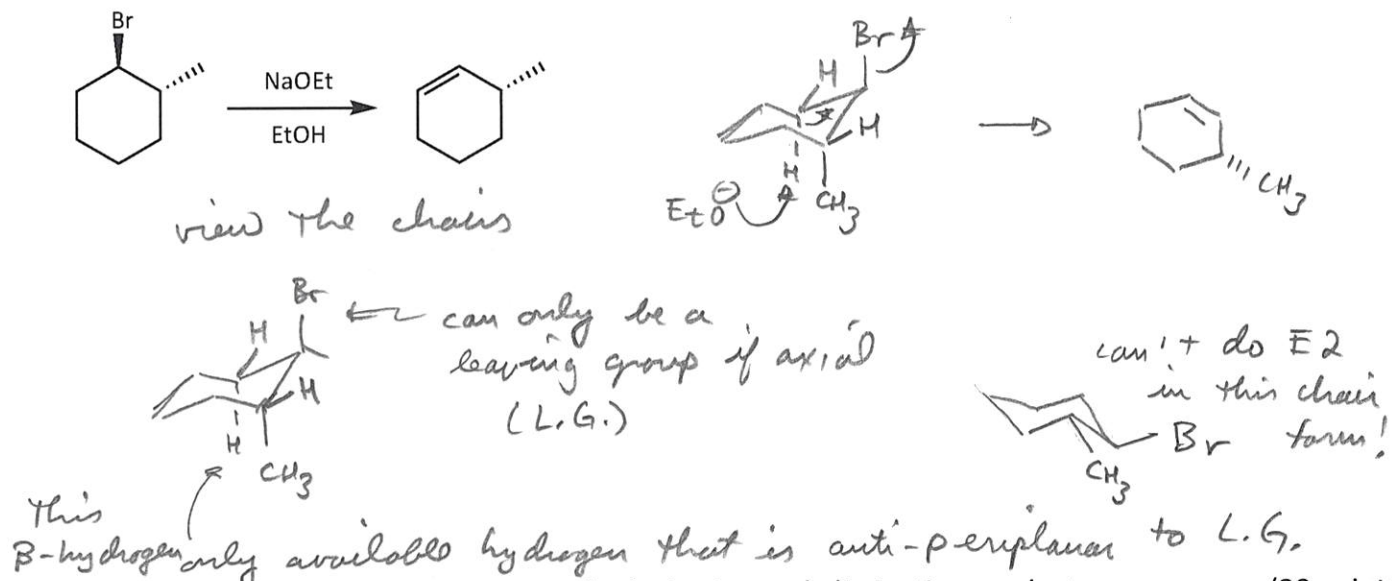 Br
NaOEt
EtOH
Br
H
H
H
EtO⊖
CH3
CH3
view the chairs
Br
H
H
H
CH3
can only be a
leaving group if axial
(L.G.)
can't do E2
in this chair
form!
Br
CH3
This
β-hydrogen only available hydrogen that is anti-periplanar to L.G.